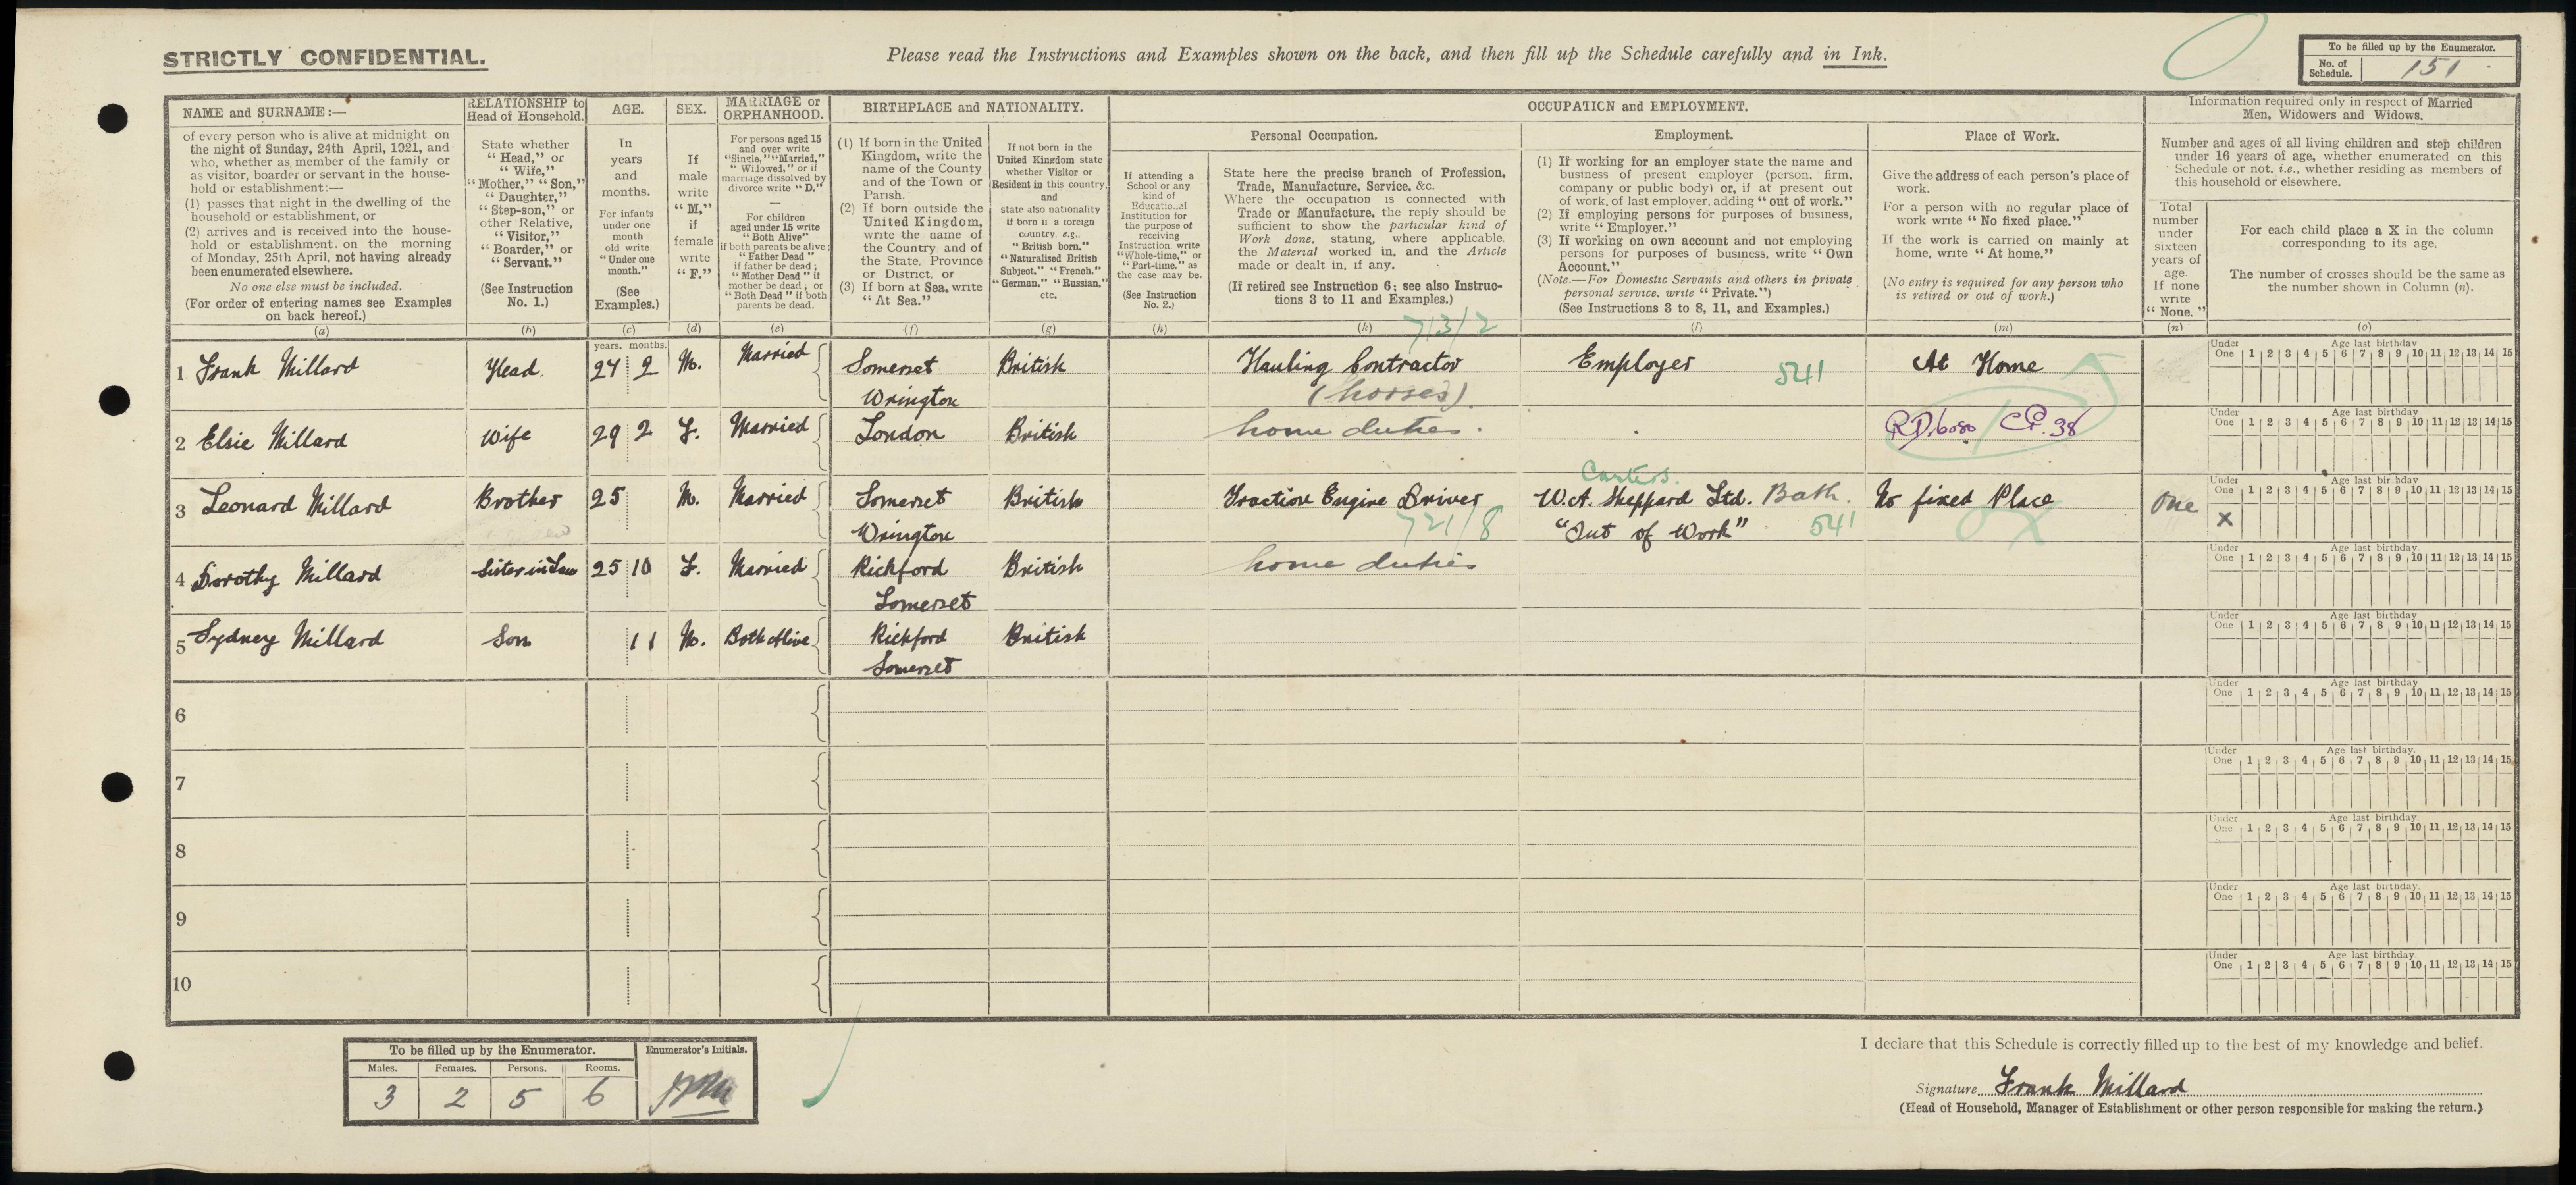 STRICTLY CONFIDENTIAL.
Please read the Instructions and Examples shown on the back, and then fill up the Schedule carefully and in Ink.
To be filled up by the Enumerator.
No. of Schedule. 151
NAME and SURNAME:—
of every person who is alive at midnight on
the night of Sunday, 24th April, 1921, and
who, whether as member of the family or
as visitor, boarder or servant in the house-
hold or establishment:—
(1) passes that night in the dwelling of the
household or establishment, or
(2) arrives and is received into the house-
hold or establishment. on the morning
of Monday, 25th April, not having already
been enumerated elsewhere.
No one else must be included.
(For order of entering names see Examples
on back hereof.)
(a)
RELATIONSHIP to
Head of Household.
State whether
"Head," or
"Wife,"
"Mother," "Son,"
"Daughter,"
"Step-son," or
other Relative,
"Visitor,"
"Boarder," or
"Servant."
(See Instruction
No. 1.)
(b)
AGE.
In
years
and
months.
For infants
under one
month
old write
"Under one
month."
(See
Examples.)
(c)
years. months.
SEX.
If
male
write
"M,"
if
female
write
"F."
(d)
MARRIAGE or
ORPHANHOOD.
For persons aged 15
and over write
"Single," "Married,"
"Widowed," or if
marriage dissolved by
divorce write "D."
—
For children
aged under 15 write
"Both Alive"
if both parents be alive;
"Father Dead"
if father be dead;
"Mother Dead" if
mother be dead; or
"Both Dead" if both
parents be dead.
(e)
BIRTHPLACE and NATIONALITY.
(1) If born in the United
Kingdom, write the
name of the County
and of the Town or
Parish.
(2) If born outside the
United Kingdom,
write the name of
the Country and of
the State, Province
or District, or
(3) If born at Sea, write
"At Sea."
(f)
If not born in the
United Kingdom state
whether Visitor or
Resident in this country,
and
state also nationality
if born in a foreign
country. e.g.,
"British born,"
"Naturalised British
Subject," "French,"
"German," "Russian,"
etc.
(g)
OCCUPATION and EMPLOYMENT.
If attending a
School or any
kind of
Educational
Institution for
the purpose of
receiving
Instruction, write
"Whole-time," or
"Part-time," as
the case may be.
(See Instruction
No. 2.)
(h)
Personal Occupation.
State here the precise branch of Profession,
Trade, Manufacture, Service, &c.
Where the occupation is connected with
Trade or Manufacture, the reply should be
sufficient to show the particular kind of
Work done, stating, where applicable,
the Material worked in, and the Article
made or dealt in, if any.
(If retired see Instruction 6; see also Instruc-
tions 3 to 11 and Examples.)
(k)
Employment.
(1) If working for an employer state the name and
business of present employer (person, firm,
company or public body) or, if at present out
of work, of last employer, adding "out of work."
(2) If employing persons for purposes of business,
write "Employer."
(3) If working on own account and not employing
persons for purposes of business, write "Own
Account."
(Note.—For Domestic Servants and others in private
personal service, write "Private.")
(See Instructions 3 to 8, 11, and Examples.)
(l)
Place of Work.
Give the address of each person's place of
work.
For a person with no regular place of
work write "No fixed place."
If the work is carried on mainly at
home, write "At home."
(No entry is required for any person who
is retired or out of work.)
(m)
Information required only in respect of Married
Men, Widowers and Widows.
Number and ages of all living children and step children
under 16 years of age, whether enumerated on this
Schedule or not, i.e., whether residing as members of
this household or elsewhere.
Total
number
under
sixteen
years of
age.
If none
write
"None."
(n)
For each child place a X in the column
corresponding to its age.
The number of crosses should be the same as
the number shown in Column (n).
(o)
713/2
1 Frank Millard Head. 27 2 M. Married Somerset British Hauling Contractor Employer 541 At Home
Wrington (horses).
Under One Age last birthday 1 2 3 4 5 6 7 8 9 10 11 12 13 14 15
2 Elsie Millard Wife 29 2 F. Married London British home duties. RD.6080 CP.38
Under One Age last birthday 1 2 3 4 5 6 7 8 9 10 11 12 13 14 15
Carters.
3 Leonard Millard Brother 25 M. Married Somerset British Traction Engine Driver W.A. Sheppard Ltd. Bath. No fixed Place one X
Wrington 721/8 "Out of Work" 541
Under One Age last birthday 1 2 3 4 5 6 7 8 9 10 11 12 13 14 15
4 Dorothy Millard Sister in Law 25 10 F. Married Rickford British home duties
Somerset
Under One Age last birthday 1 2 3 4 5 6 7 8 9 10 11 12 13 14 15
5 Sydney Millard Son 11 M. Both Alive Rickford British
Somerset
Under One Age last birthday 1 2 3 4 5 6 7 8 9 10 11 12 13 14 15
6
Under One Age last birthday 1 2 3 4 5 6 7 8 9 10 11 12 13 14 15
7
Under One Age last birthday. 1 2 3 4 5 6 7 8 9 10 11 12 13 14 15
8
Under One Age last birthday 1 2 3 4 5 6 7 8 9 10 11 12 13 14 15
9
Under One Age last birthday. 1 2 3 4 5 6 7 8 9 10 11 12 13 14 15
10
Under One Age last birthday 1 2 3 4 5 6 7 8 9 10 11 12 13 14 15
To be filled up by the Enumerator.
Enumerator's Initials.
Males. Females. Persons. Rooms.
3 2 5 6
I declare that this Schedule is correctly filled up to the best of my knowledge and belief.
Signature Frank Millard
(Head of Household, Manager of Establishment or other person responsible for making the return.)